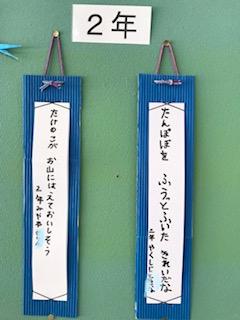 2年
たんぽぽを ふうっとふいた きれいだな
二年 やくしじ
たけのこが お山にはえておいしそう
2年 みやも